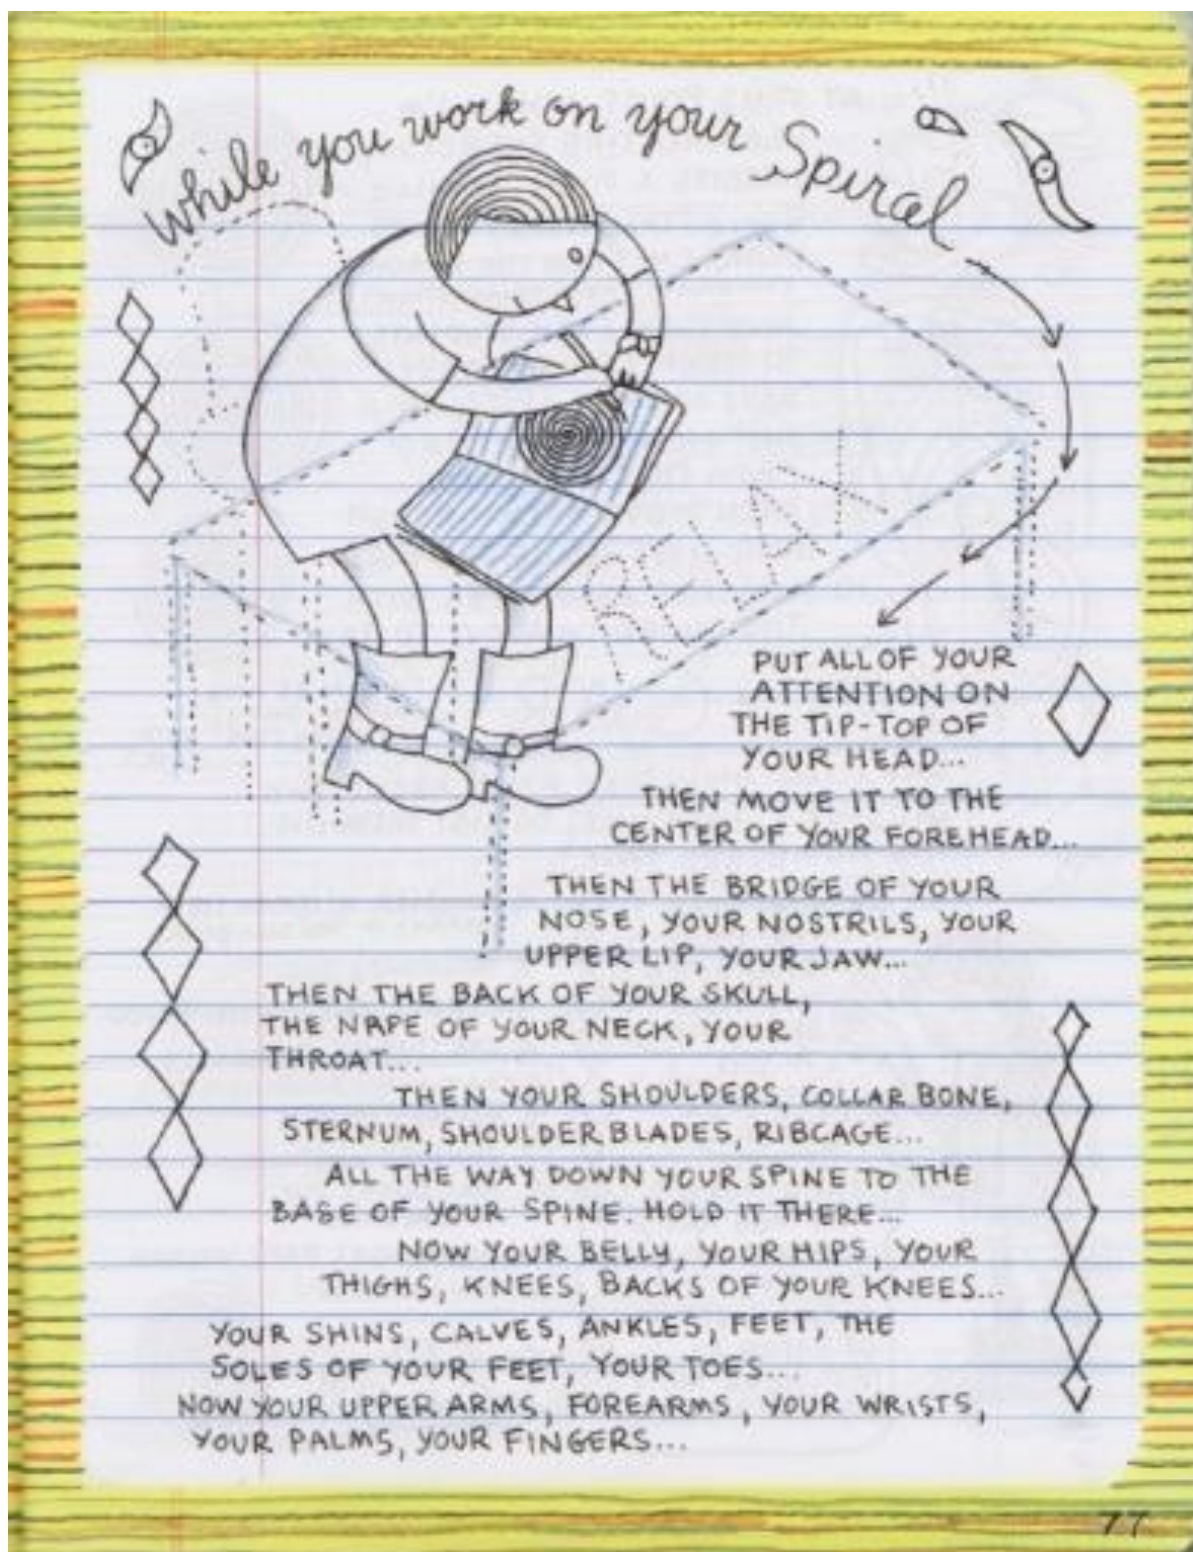 While you work on your Spiral
RELAX
PUT ALL OF YOUR
ATTENTION ON
THE TIP-TOP OF
YOUR HEAD...
THEN MOVE IT TO THE
CENTER OF YOUR FOREHEAD...
THEN THE BRIDGE OF YOUR
NOSE, YOUR NOSTRILS, YOUR
UPPER LIP, YOUR JAW...
THEN THE BACK OF YOUR SKULL,
THE NAPE OF YOUR NECK, YOUR
THROAT...
THEN YOUR SHOULDERS, COLLAR BONE,
STERNUM, SHOULDER BLADES, RIBCAGE...
ALL THE WAY DOWN YOUR SPINE TO THE
BASE OF YOUR SPINE. HOLD IT THERE...
NOW YOUR BELLY, YOUR HIPS, YOUR
THIGHS, KNEES, BACKS OF YOUR KNEES...
YOUR SHINS, CALVES, ANKLES, FEET, THE
SOLES OF YOUR FEET, YOUR TOES...
NOW YOUR UPPER ARMS, FOREARMS, YOUR WRISTS,
YOUR PALMS, YOUR FINGERS...
77